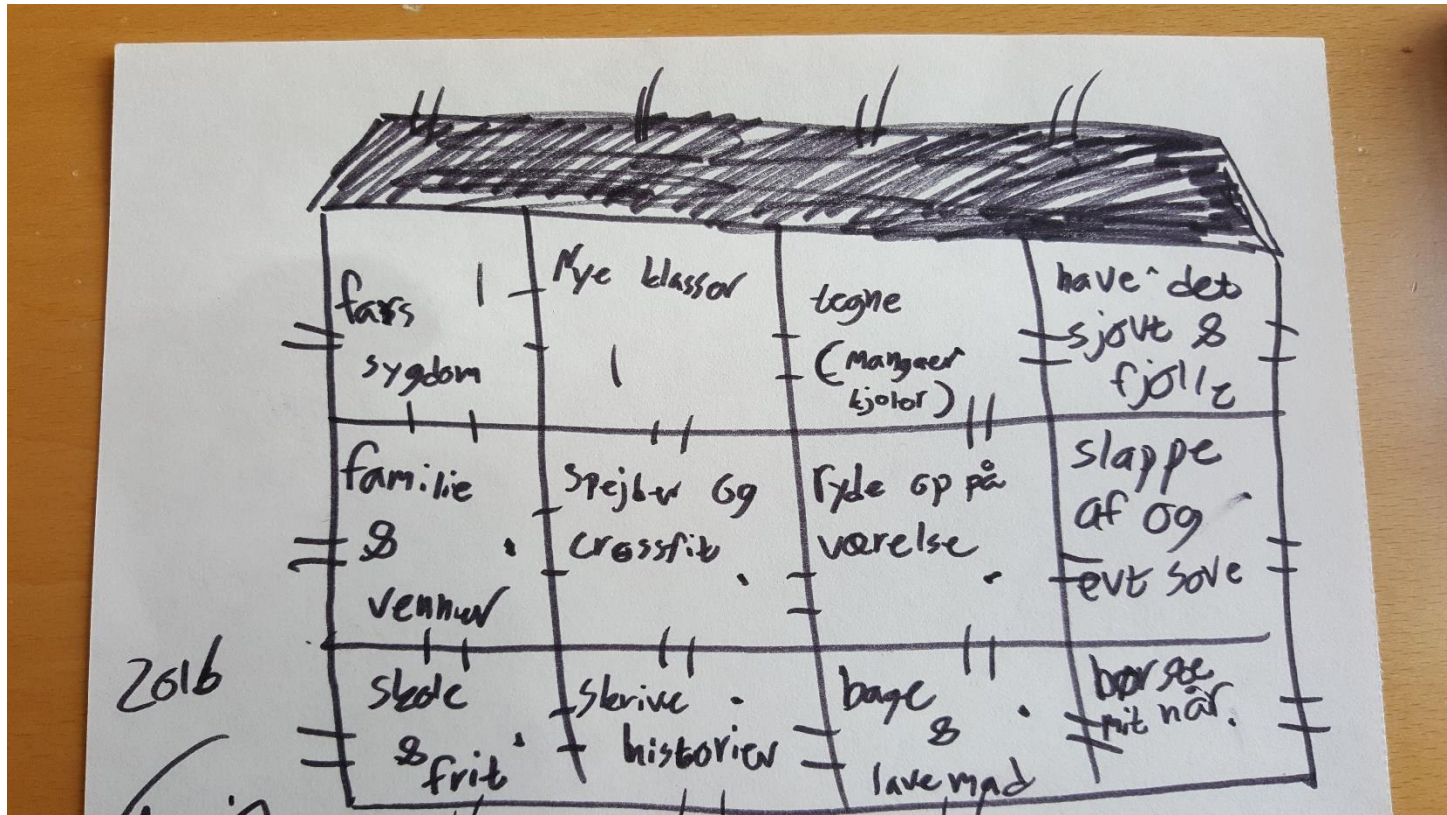 fars
sygdom
Nye klasser
tegne
(Mangaer
kjoler)
have det
sjovt &
fjolle
familie
&
venner
Spejder og
crossfit
ryde op på
værelse
slappe
af og
evt sove
skole
& frit
skrive
historier
bage
&
lave mad
børste
mit hår.
2016